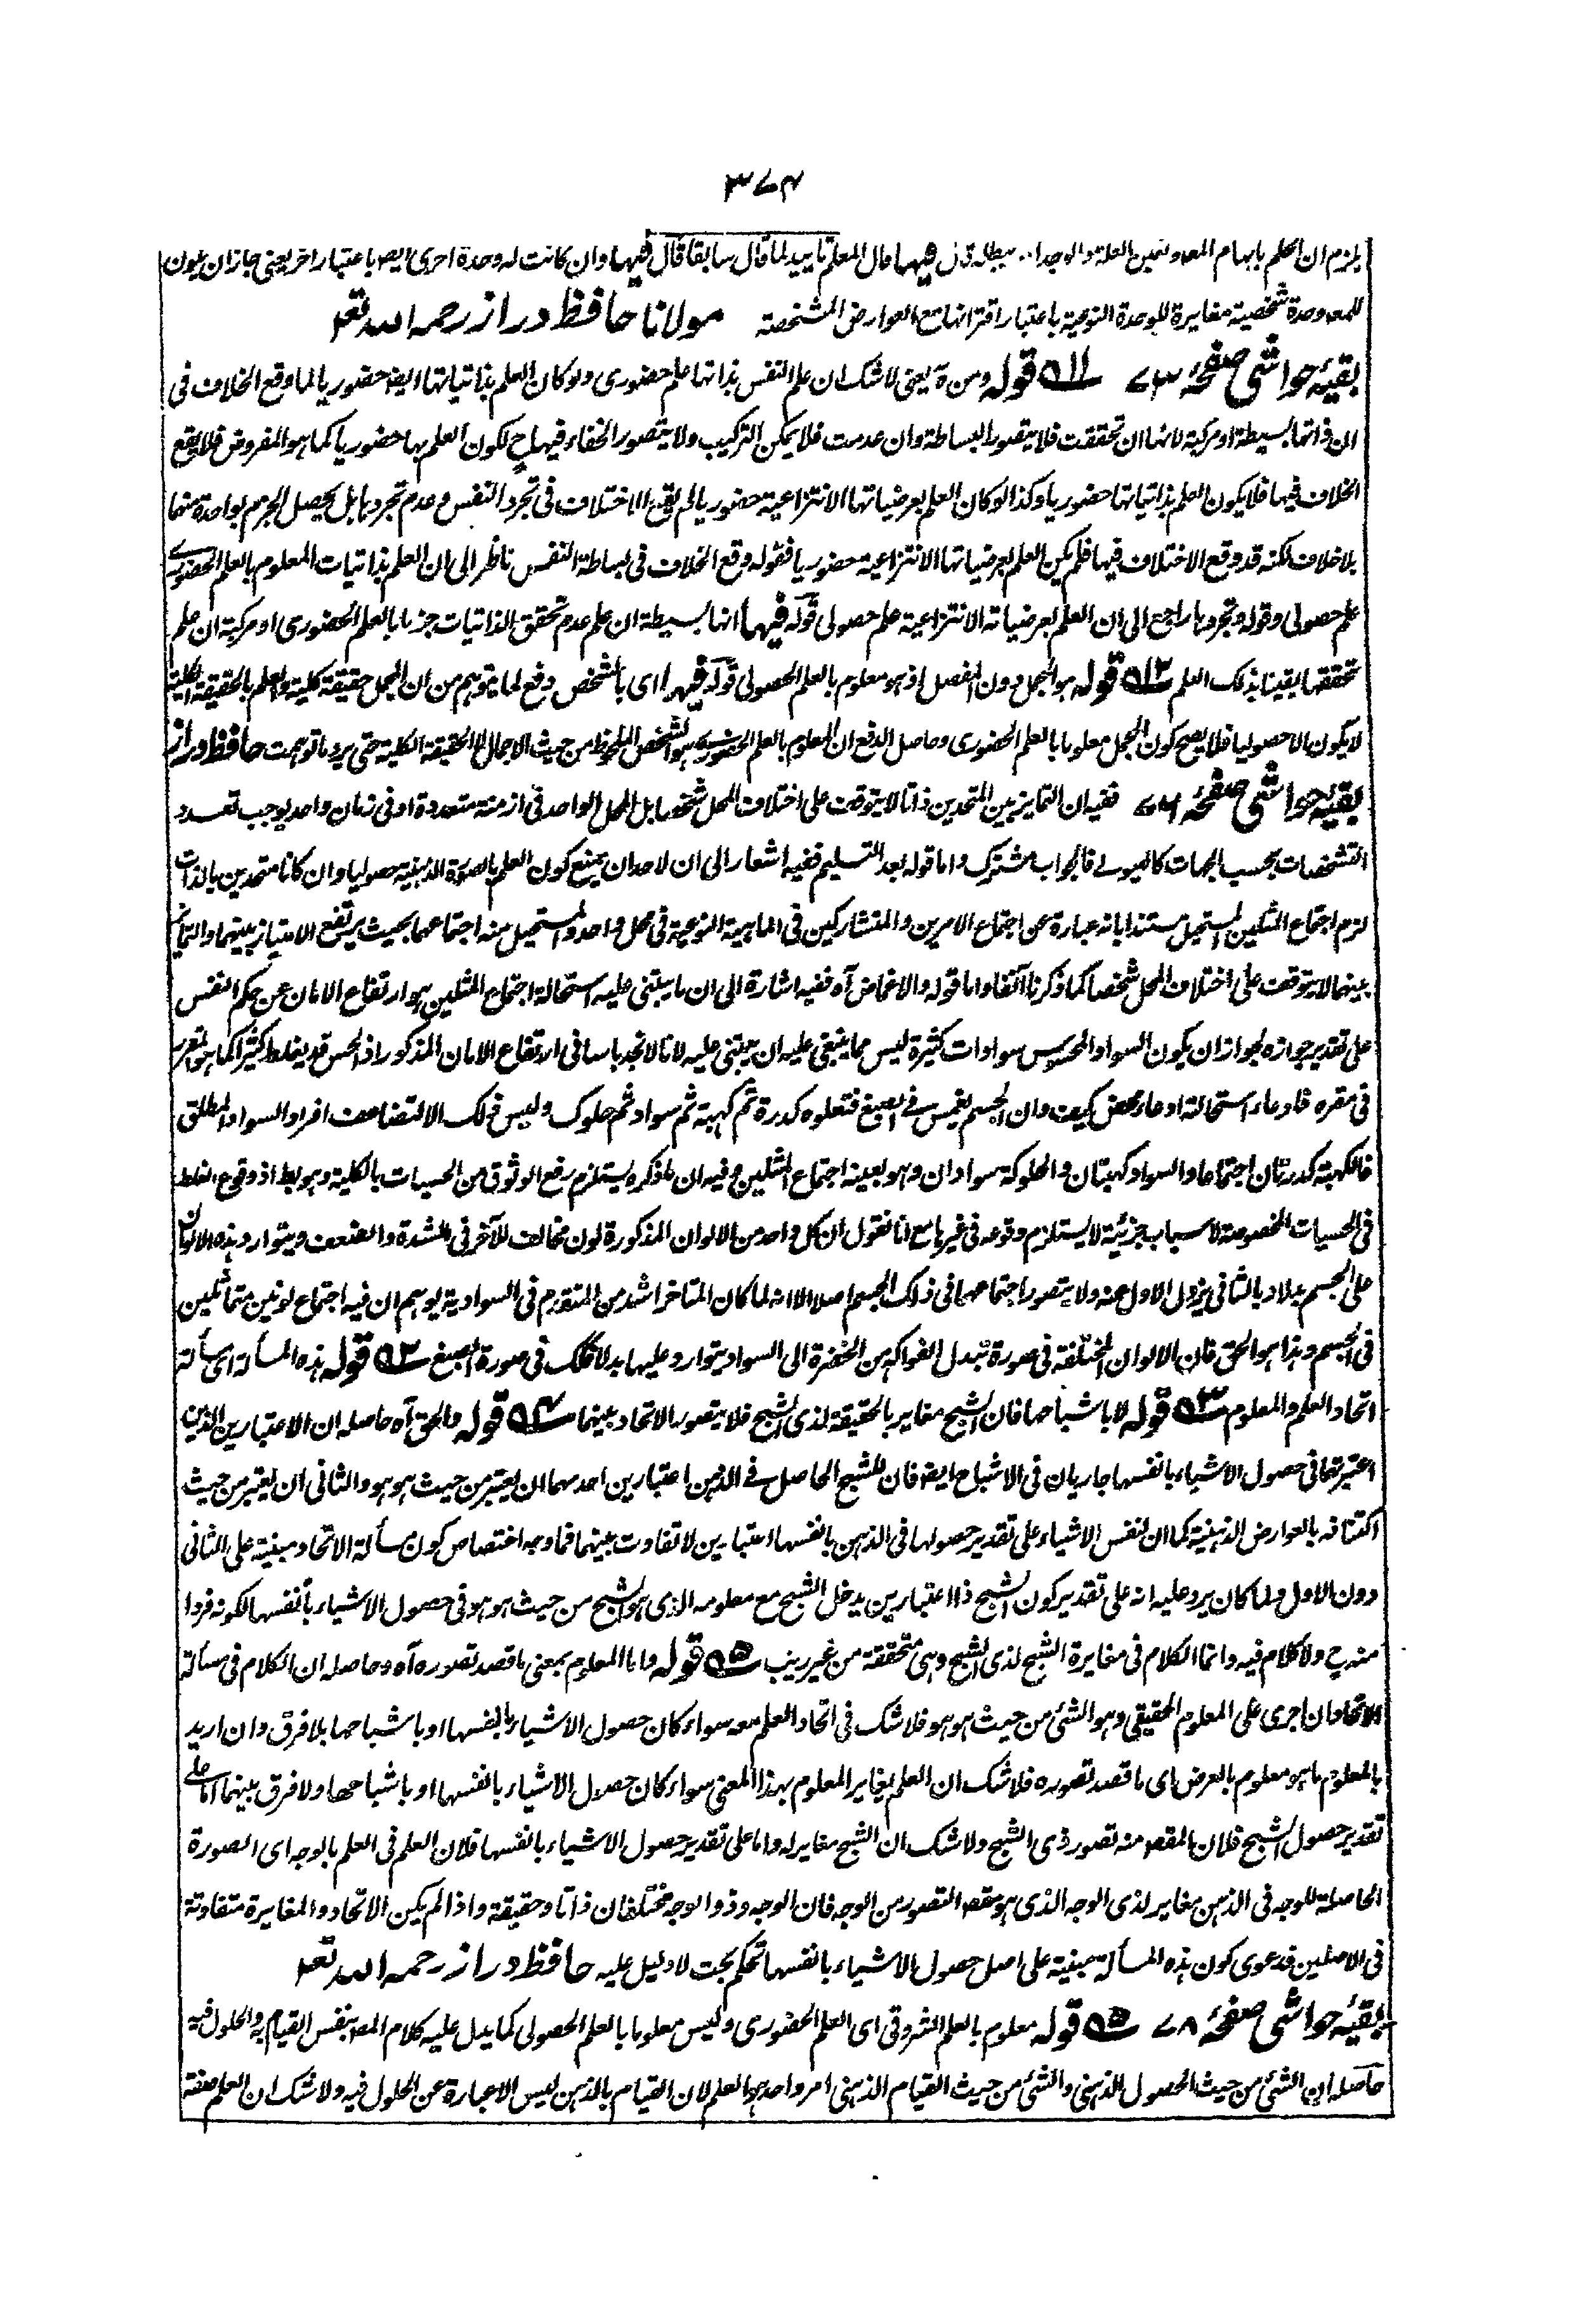 ٣٧٤
يلزم ان الحكم بابهام المعد وتعين العلة والوجدان يبطله قال فيها قال المعلم تاييد لما قال سابقا قال فيها وان كانت له وحدة اخرى ايضا باعتبار اخر يعنى جاز ان يكون
للمعد وحدة شخصية مغايرة للوحدة النوعية باعتبار اقترانها مع العوارض المشخصة مولانا حافظ دراز رحمه الله تعه
بقيۂ حواشى صفحۂ ٧٣ ۵۱۱ قوله ومن ثم يعنى لا شك ان علم النفس بذاتها علم حضورى ولو كان العلم بذاتياتها ايضا حضوريا لما وقع الخلاف فى
ان ذاتها بسيطة او مركبة لانها ان تحققت فلا يتصور البساطة وان عدمت فلا يمكن التركيب ولا يتصور الخفاء فيها ح لكون العلم بها حضوريا كما هو المفروض فلا يقع
الخلاف فيها فلا يكون العلم بذاتياتها حضوريا وكذا لو كان العلم بعرضياتها الانتزاعية حضوريا لم يقع الاختلاف فى تجرد النفس وعدم تجردها بل يحصل الجزم بواحدة منها
بلا خلاف لكنه قد وقع الاختلاف فيها فلم يكن العلم بعرضياتها الانتزاعية حضوريا فقوله وقع الخلاف فى بساطة النفس ناظر الى ان العلم بذاتيات المعلوم بالعلم الحضورى
علم حصولى وقوله وتجردها راجع الى ان العلم بعرضياته الانتزاعية علم حصولى قوله فيها انها بسيطة ان علم عدم تحقق الذاتيات جزما بالعلم الحضورى او مركبة ان علم
تحققها يقينا بذلك العلم ۵۱۲ قوله هو المجمل دون المفصل اذ هو معلوم بالعلم الحصولى قوله فيها اى بالشخص دفع لما يتوهم من ان المجمل حقيقة كلية والعلم بالحقيقة الكلية
لا يكون الا حصوليا فلا يصح كون المجمل معلوما بالعلم الحضورى وحاصل الدفع ان المعلوم بالعلم الحضورى هو الشخص الملحوظ من حيث الاجمال لا الحقيقة الكلية حتى يرد ما توهمت حافظ دراز
بقيۂ حواشى صفحۂ ٧٤ ففيه ان التمايز بين المتحدين ذاتا لا يتوقف على اختلاف المحل شخصا بل المحل الواحد فى ازمنة متعددة او فى زمان واحد يوجب تعدد
التشخصات بحسب الجهات كالهيولى فالجواب مشترك واما قوله بعد التسليم ففيه اشعار الى ان لاحد ان يمنع كون العلم بالصورة الذهنية حصوليا وان كانا متحدين بالذات
لزم اجتماع المثلين المستحيل مستندا بانه عبارة عن اجتماع الامرين والمتشاركين فى الماهية النوعية فى محل واحد والمستحيل منه اجتماعهما بحيث يرتفع الامتياز بينهما والتمايز
بينهما لا يتوقف على اختلاف المحل شخصا كما ذكرنا آنفا واما قوله والاغماض آه ففيه اشارة الى ان ما يبتنى عليه استحالة اجتماع المثلين هو ارتفاع الامان عن حكم النفس
على تقدير جوازه لجواز ان يكون السواد المحسوس سوادات كثيرة ليس مما ينبغى عليه ان يبتنى عليه لانا لا نجد باسا فى ارتفاع الامان المذكور اذ الحس قد يغلط كثيرا كما هو المقرر
فى مقره فادعاء استحالته ادعاء محض كيف وان الجسم يغمس فى الصبغ فتعلوه كدرة ثم كهبة ثم سواد ثم حلوك وليس ذلك الا لتضاعف افراد السواد المطلق
فالكهبة كدرتان اجتمعا والسواد كهبتان والحلوكة سوادان وهو بعينه اجتماع المثلين وفيه ان ما ذكره يستلزم رفع الوثوق من الحسيات بالكلية وهو بط اذ وقوع الغلط
فى الحسيات المخصوصة لاسباب جزئية لا يستلزم وقوعه فى غيرها مع انا نقول ان كل واحد من الالوان المذكورة لون مخالف للآخر فى الشدة والضعف ويتوارد هذه الالوان
على الجسم بدلا وبالثانى يزول الاول عنه ولا يتصور اجتماعهما فى ذلك الجسم اصلا الا انه لما كان المتاخر اشد من المتقدم فى السوادية يوهم ان فيه اجتماع لونين متماثلين
فى الجسم وهذا هو الحق فان الالوان المختلفة فى صورة تبدل الفواكه من الخضرة الى السواد يتوارد عليها بدلا فكذلك فى صورة الصبغ ۵۲ قوله هذه المسألة اى مسألة
اتحاد العلم والمعلوم ۵۳ قوله لا باشباحها فان الشبح مغاير بالحقيقة لذى الشبح فلا يتصور الاتحاد بينهما ۵۴ قوله والحق آه حاصله ان الاعتبارين الذين
اعتبرتما فى حصول الاشياء بانفسها جاريان فى الاشباح ايضا فان للشبح الحاصل فى الذهن اعتبارين احدهما ان يعتبر من حيث هو هو والثانى ان يعتبر من حيث
اكتنافه بالعوارض الذهنية كما ان لنفس الاشياء على تقدير حصولها فى الذهن بانفسها اعتبارين لا تفاوت بينهما فما وجه اختصاص كون مسألة الاتحاد مبنية على الثانى
دون الاول ولما كان يرد عليه انه على تقدير كون الشبح ذا اعتبارين يدخل الشبح مع معلومه الذى هو الشبح من حيث هو هو فى حصول الاشياء بأنفسها لكونه فردا
منه ح ولا كلام فيه وانما الكلام فى مغايرة الشبح لذى الشبح وهى متحققة من غير ريب ۵۵ قوله واما المعلوم بمعنى ما قصد تصوره آه وحاصله ان الكلام فى مسألة
الاتحاد ان اجرى على المعلوم الحقيقى وهو الشئ من حيث هو هو فلا شك فى اتحاد العلم معه سواء كان حصول الاشياء بانفسها او باشباحها بلا فرق وان اريد
بالمعلوم ما هو معلوم بالعرض اى ما قصد تصوره فلا شك ان العلم يغاير المعلوم بهذا المعنى سواء كان حصول الاشياء بانفسها او باشباحها ولا فرق بينهما اما على
تقدير حصول الشبح فلان المقصد منه تصور ذى الشبح ولا شك ان الشبح مغاير له واما على تقدير حصول الاشياء بانفسها فلان العلم فى العلم بالوجه اى الصورة
الحاصلة للوجه فى الذهن مغاير لذى الوجه الذى هو مقصد المتصور من الوجه فان الوجه وذو الوجه مختلفان ذاتا وحقيقة واذا لم يكن الاتحاد والمغايرة متفاوتة
فى الاصلين فدعوى كون هذه المسألة مبنية على اصل حصول الاشياء بانفسها تحكم بحت لا دليل عليه حافظ دراز رحمه الله تعه
بقيۂ حواشى صفحۂ ٧٨ ۵۵ قوله معلوم بالعلم الشروقى اى العلم الحضورى وليس معلوما بالعلم الحصولى كما يدل عليه كلام المصه بنفس القيام به والحلول فيه
حاصله ان الشئ من حيث الحصول الذهنى والشئ من حيث القيام الذهنى امر واحد هو العلم لان القيام بالذهن ليس الا عبارة عن الحلول فيه ولا شك ان العلم صفة